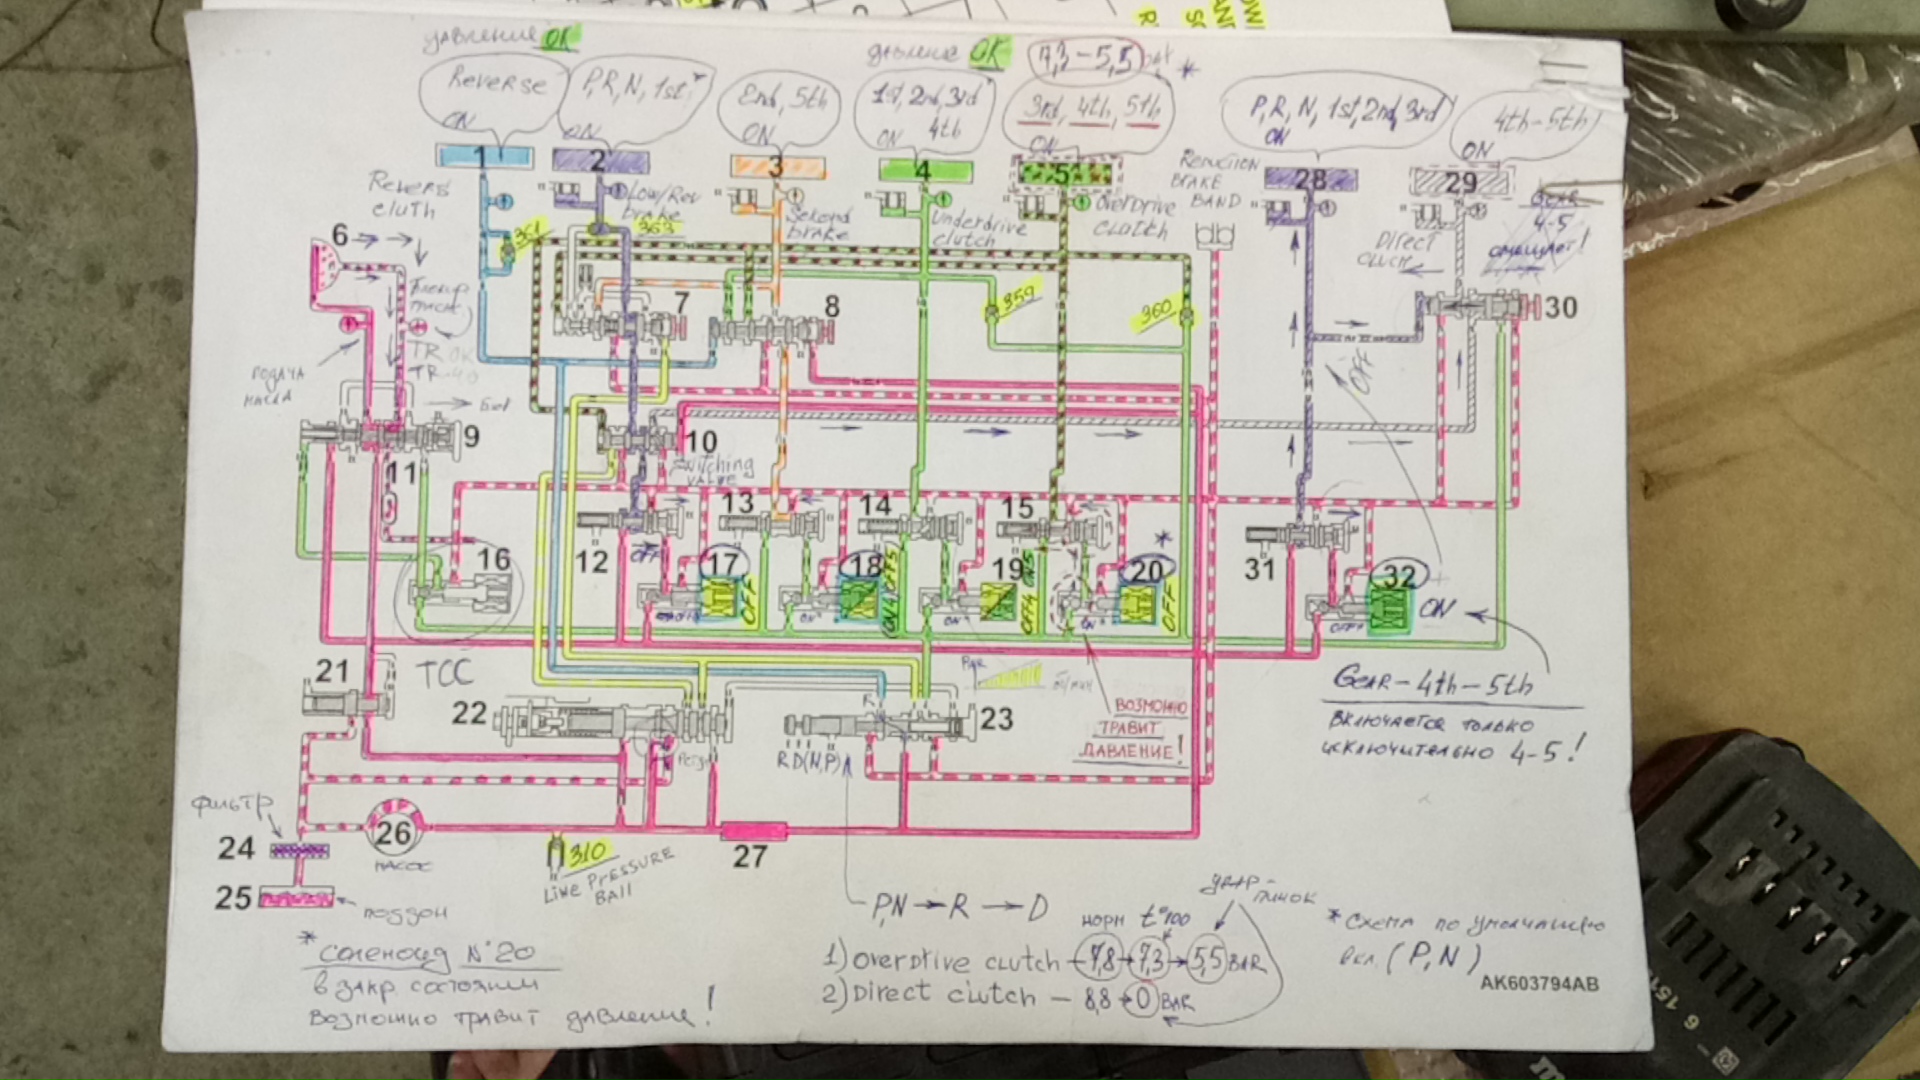 давление OK
давление OK
7,3-5,5 *
Reverse
ON
P,R,N,1st
ON
End, 5th
ON
1st, 2nd, 3rd
ON 4th
3rd, 4th, 5th
ON
P, R, N, 1st, 2nd, 3rd
ON
4th-5th
ON
1
2
3
4
5
28
29
Low/Rev
brake
Second
brake
Underdrive
clutch
OVERDRIVE
BRAKE
BAND
Direct
GEAR
4-5
361
363
359
360
6
7
8
30
подача
масла
TR
TR
OFF
9
10
Switching
VALVE
11
12
13
14
15
16
17
18
19
20
*
31
32
OFF
OFF
OFF
ON
TCC
ВОЗМОЖНО
ТРАВИТ
ДАВЛЕНИЕ!
GEAR-4th-5th
включается только
исключительно 4-5!
21
22
23
R
R D(N,P)
фильтр
24
25
поддон
26
насос
310
LINE PRESSURE
BAll
27
P,N → R → D
норм t°100
1) Overdrive clutch - 7,8 → 7,3 → 5,5 BAR
2) Direct clutch - 8,8 → 0 BAR
* Схема по умолчанию
вкл. (P, N)
AK603794AB
*
Соленоид №20
в закр. состоянии
возможно травит давление!